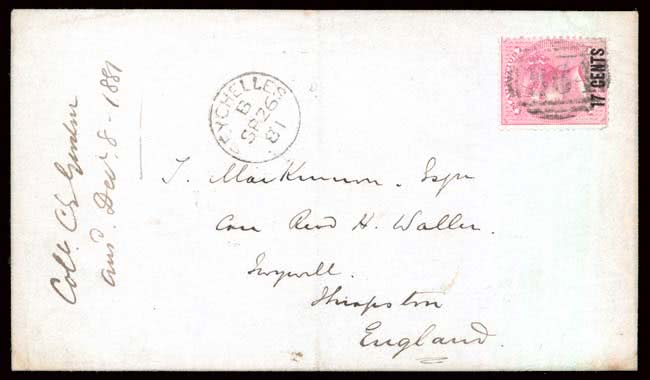 SEYCHELLES
B
SP 26
81
MAURITIUS
17 CENTS
B64
Col. C G Gordon
ansd. Decr. 8 - 1881
J. MacKinnon. Esqr
Care Revd H. Waller.
Twywell.
Thrapston
England.